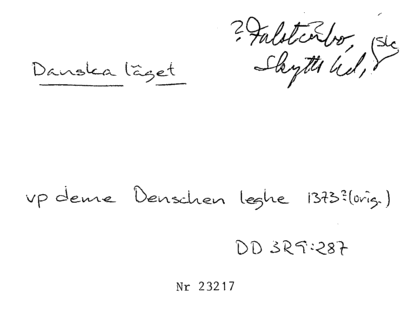 ? Falsterbo,
Skytts hd, Sk
Danska läget
vp deme Denschen leghe 1373? (orig.)
DD 3R9:287
Nr 23217